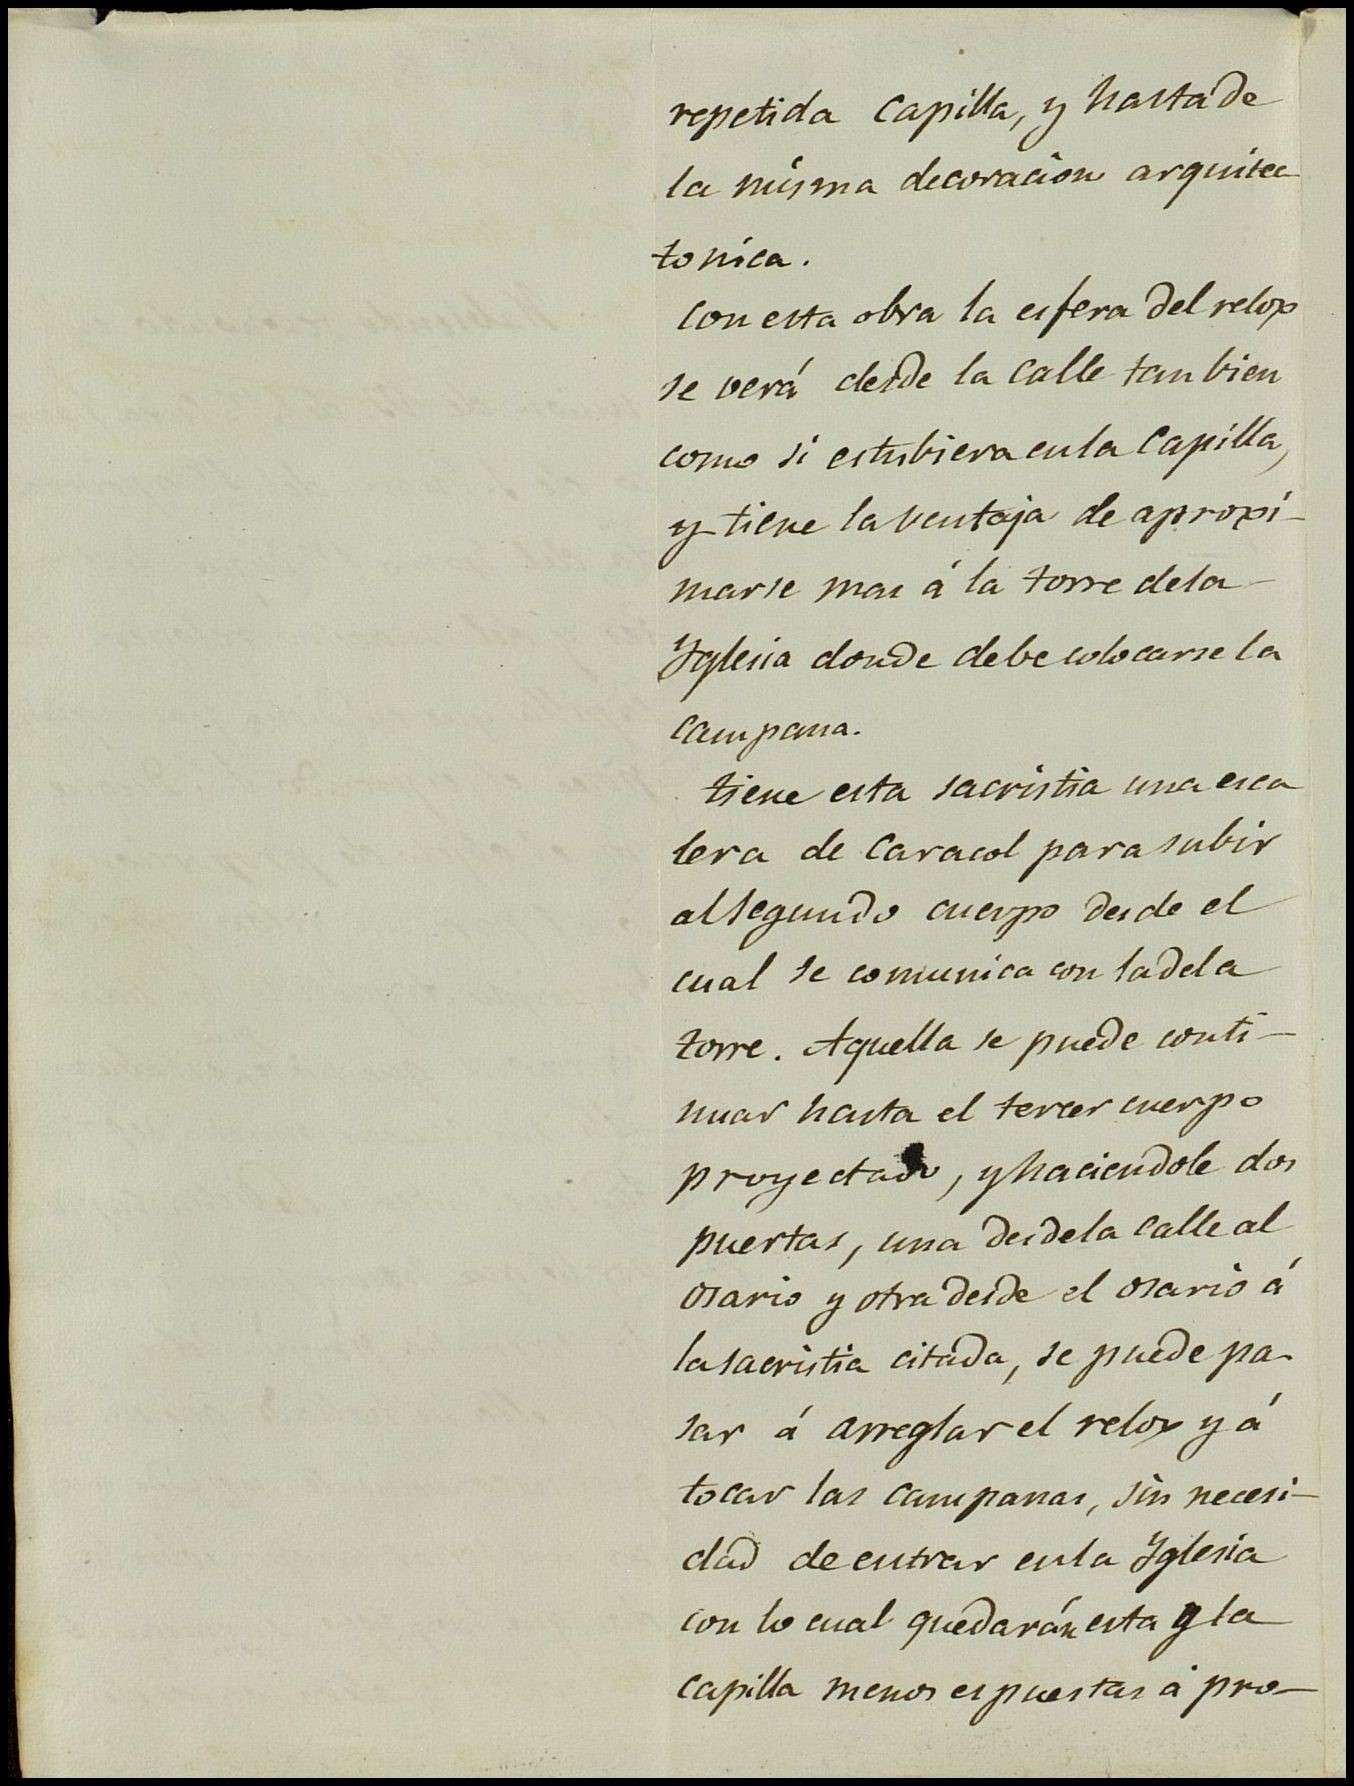 repetida Capilla, y hasta de
la misma decoracion arquitec
tonica.
Con esta obra la esfera del relox
se verá desde la Calle tan bien
como si estubiera en la Capilla,
y tiene la ventaja de aproxi-
marse mas á la torre de la
Yglesia donde debe colocarse la
campana.
Tiene esta sacristia una esca
lera de Caracol para subir
al segundo cuerpo desde el
cual se comunica con la de la
torre. Aquella se puede conti-
nuar hasta el tercer cuerpo
proyectado, y haciendole dos
puertas, una desde la Calle al
osario y otra desde el osario á
la sacristia citada, se puede pa-
sar á arreglar el relox y á
tocar las campanas, sin necesi-
dad de entrar en la Yglesia
con lo cual quedarán esta y la
capilla menos espuestas á pro-